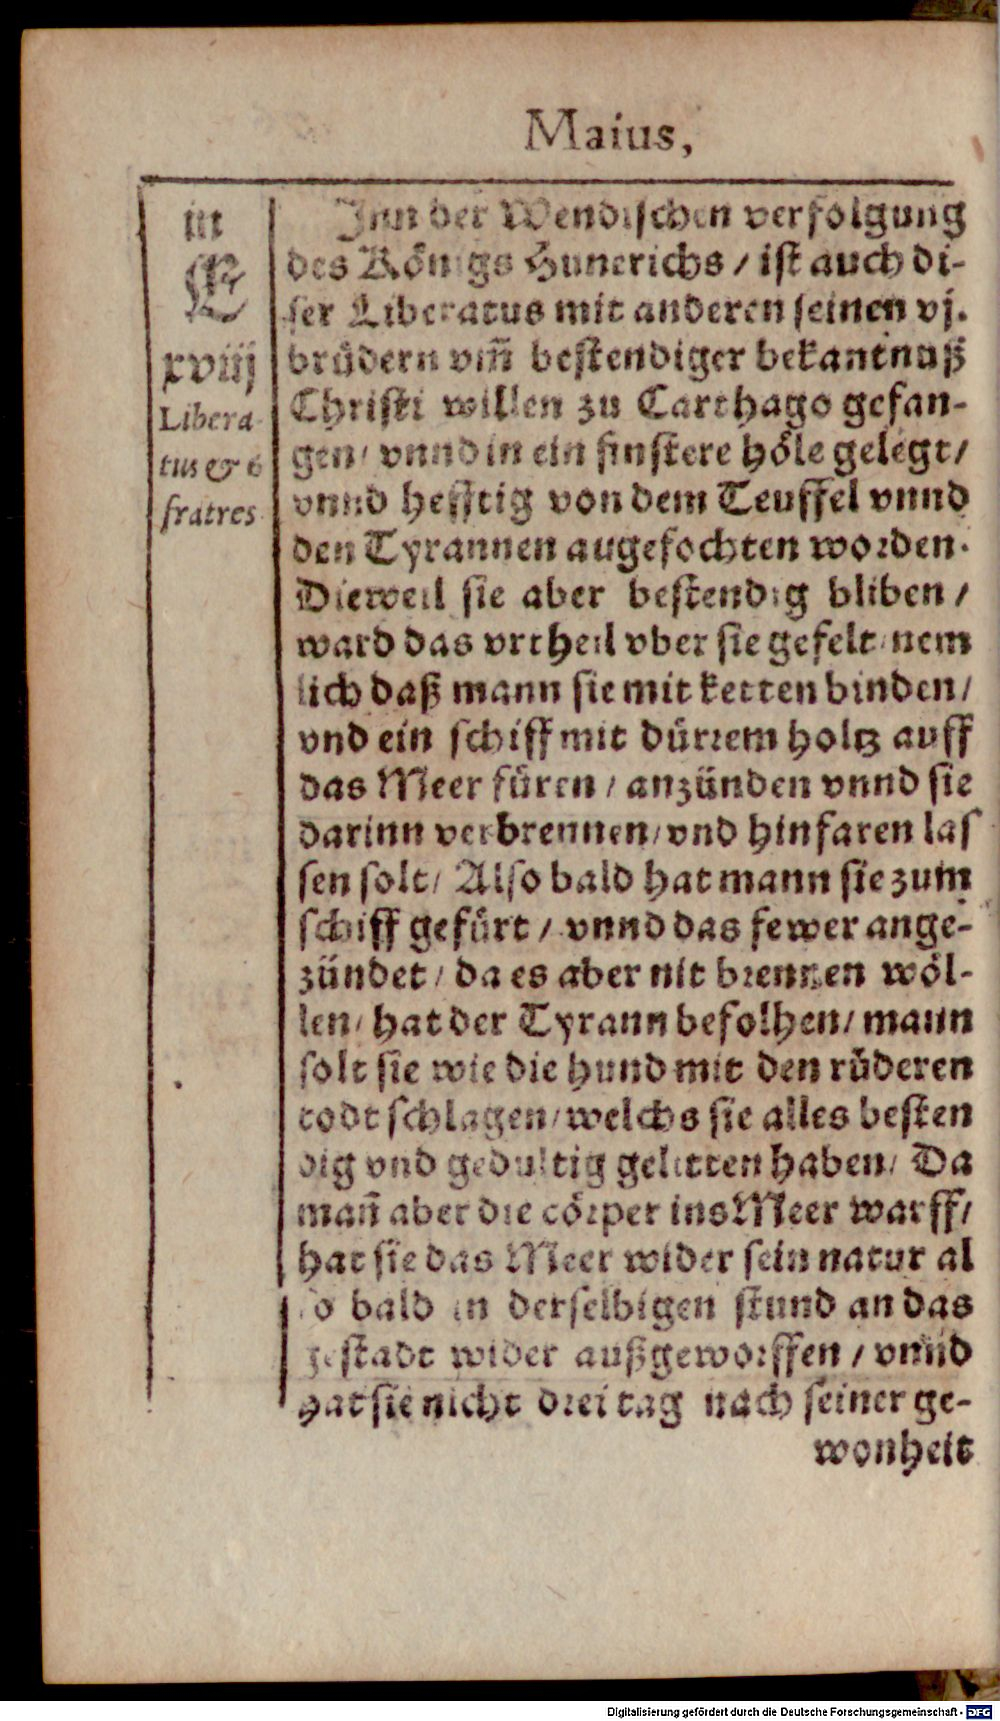 Maius,
iij
E
xviij
Libera
tus & 6
fratres
Inn der Wendischen verfolgung
des Königs Hunerichs / ist auch di-
ser Liberatus mit anderen seinen vj.
brůdern vm̃ bestendiger bekantnuß
Christi willen zu Carthago gefan-
gen / vnnd in ein finstere höle gelegt /
vnnd hefftig von dem Teuffel vnnd
den Tyrannen augefochten worden.
Dieweil sie aber bestendig bliben /
ward das vrtheil vber sie gefelt / nem
lich daß mann sie mit ketten binden /
vnd ein schiff mit dürrem holtz auff
das Meer fůren / anzünden vnnd sie
darinn verbrennen / vnd hinfaren las
sen solt / Also bald hat mann sie zum
schiff gefůrt / vnnd das fewer ange-
zündet / da es aber nit brennen wöl-
len / hat der Tyrann befolhen / mann
solt sie wie die hund mit den růderen
todt schlagen / welchs sie alles besten
dig vnd gedultig gelitten haben / Da
mañ aber die cörper ins Meer warff /
hat sie das Meer wider sein natur al
so bald in derselbigen stund an das
gestadt wider außgeworffen / vnnd
hat sie nicht drei tag nach seiner ge-
wonheit
Digitalisierung gefördert durch die Deutsche Forschungsgemeinschaft - DFG